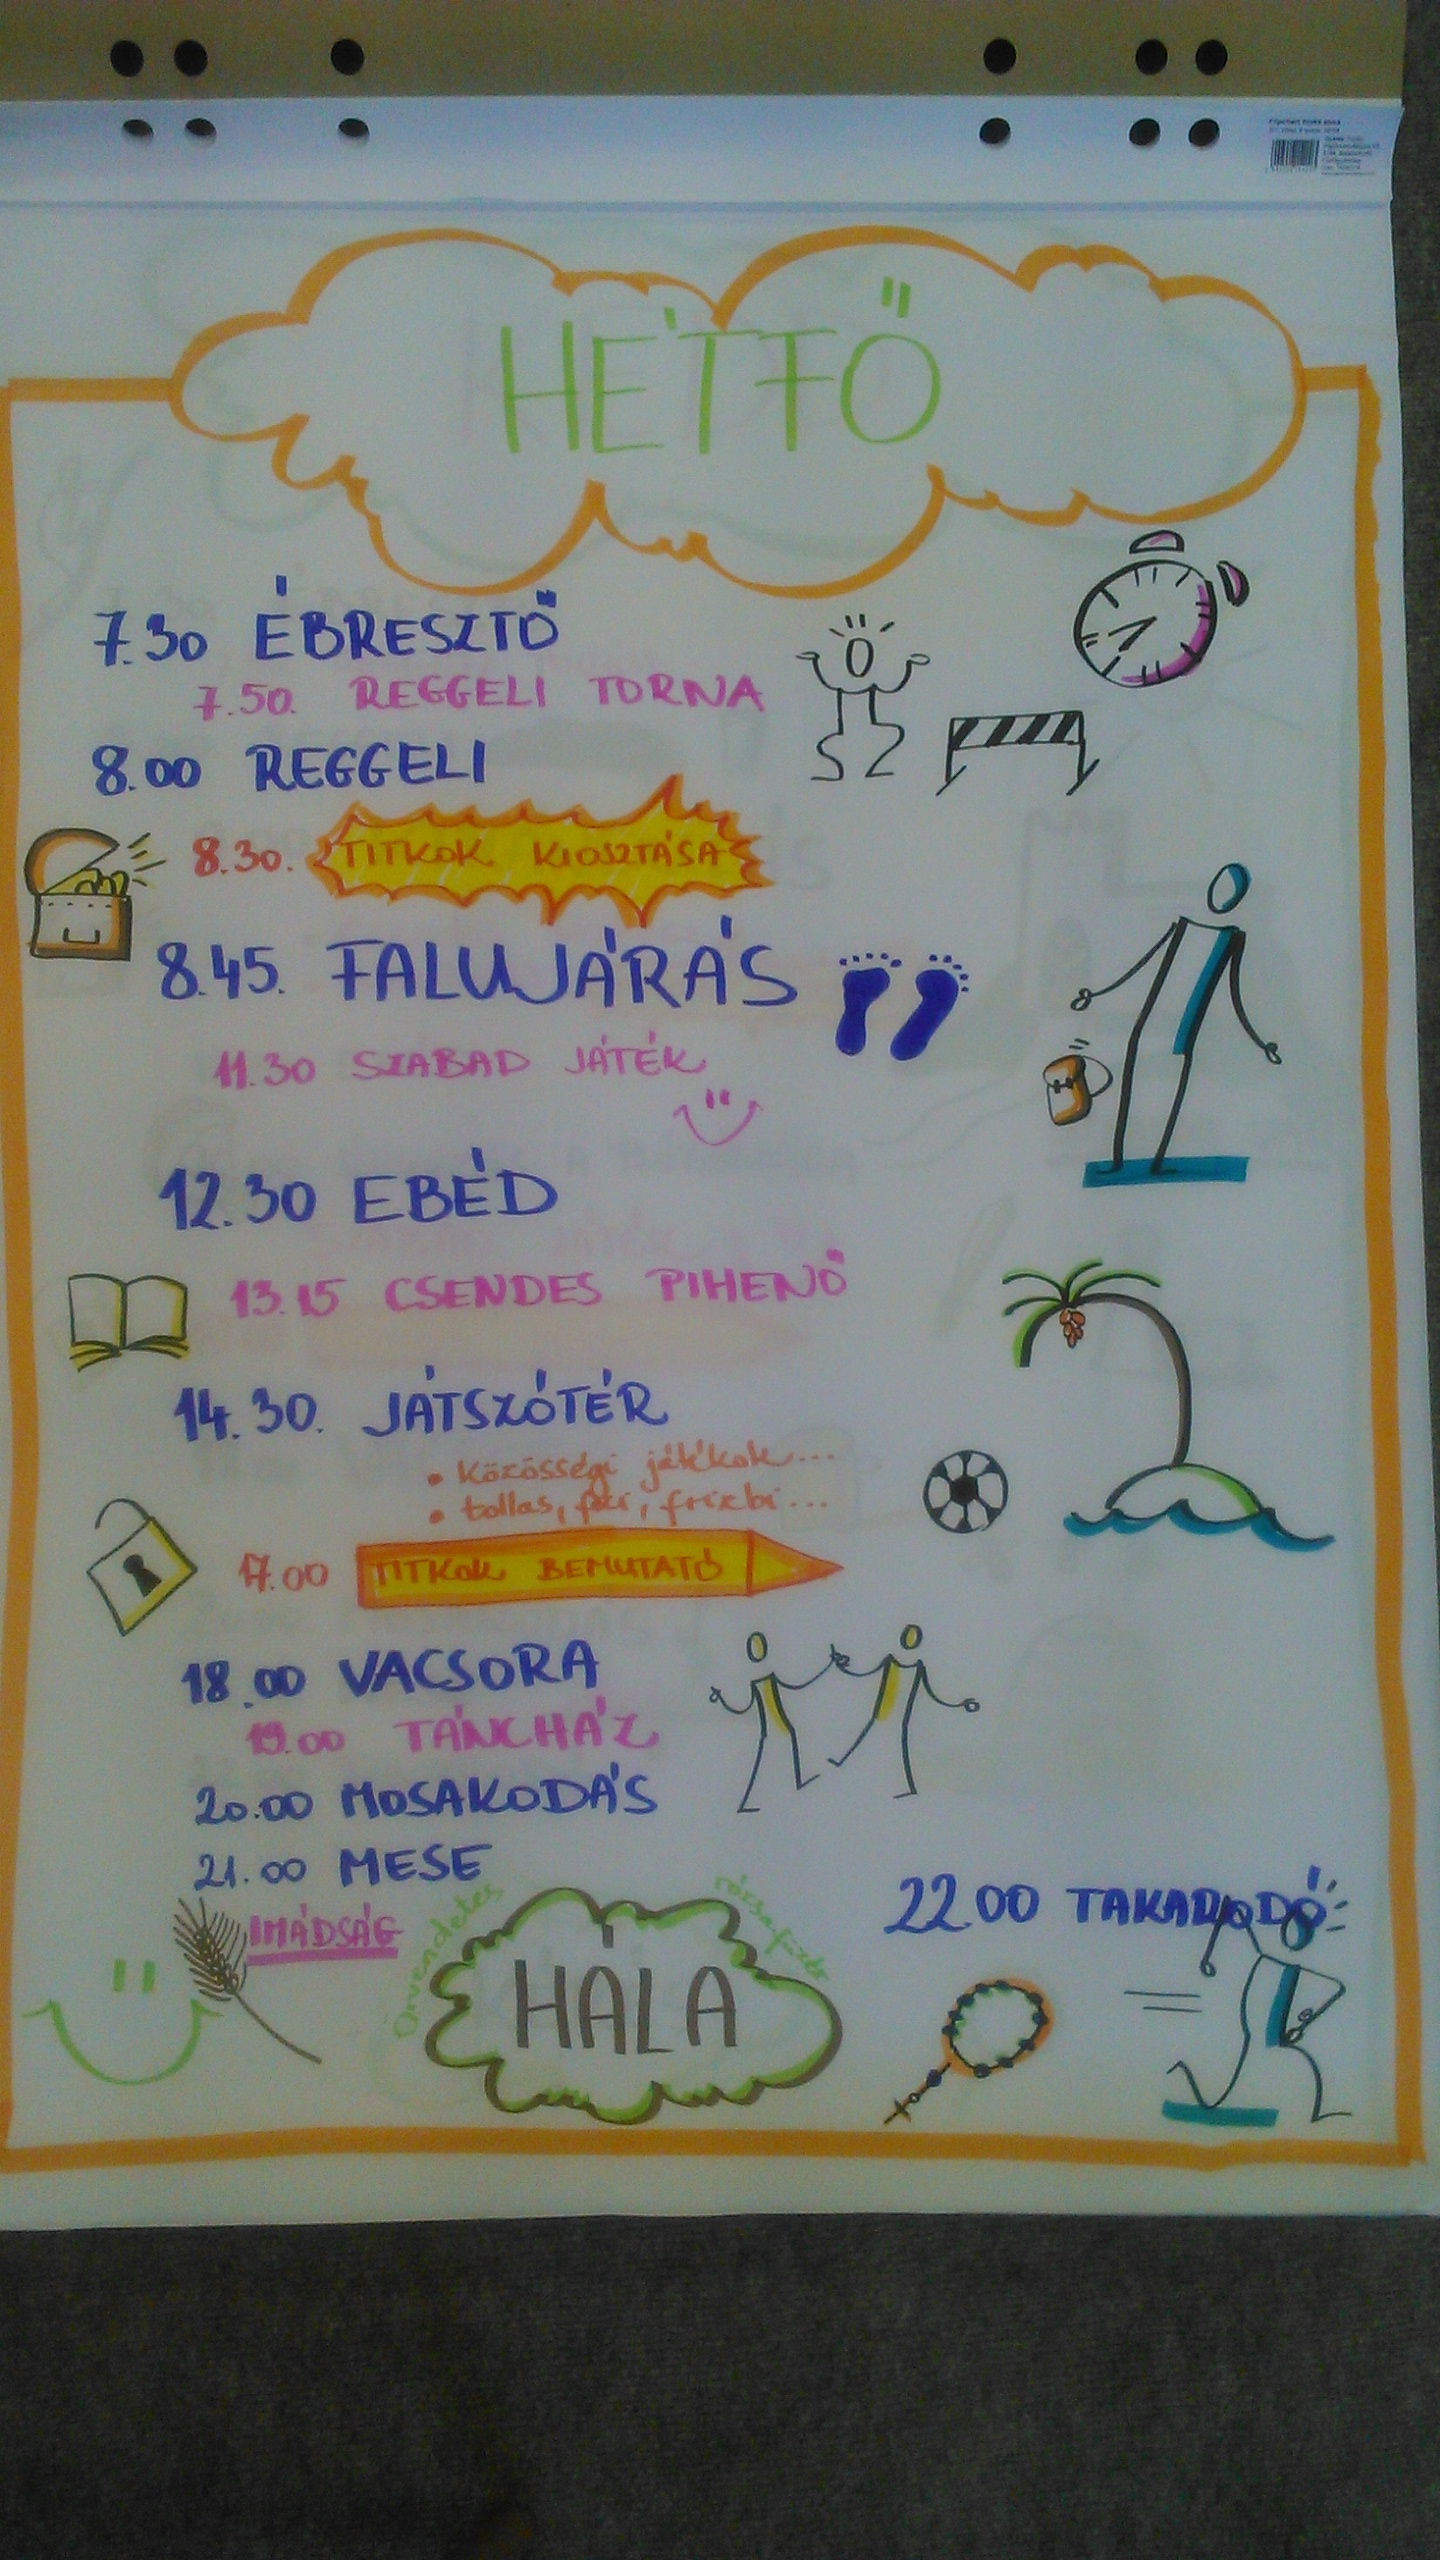 HÉTFŐ
7.30 ÉBRESZTŐ
7.50. REGGELI TORNA
8.00 REGGELI
8.30. TITKOK KIOSZTÁSA
8.45. FALUJÁRÁS
11.30 SZABAD JÁTÉK
12.30 EBÉD
13.15 CSENDES PIHENŐ
14.30. JÁTSZÓTÉR
• Közösségi játékok...
• tollas, foci, frizbi...
17.00 TITKOK BEMUTATÓ
18.00 VACSORA
19.00 TÁNCHÁZ
20.00 MOSAKODÁS
21.00 MESE
22.00 TAKARODÓ
IMÁDSÁG
Örvendetes rózsafüzér
HÁLA